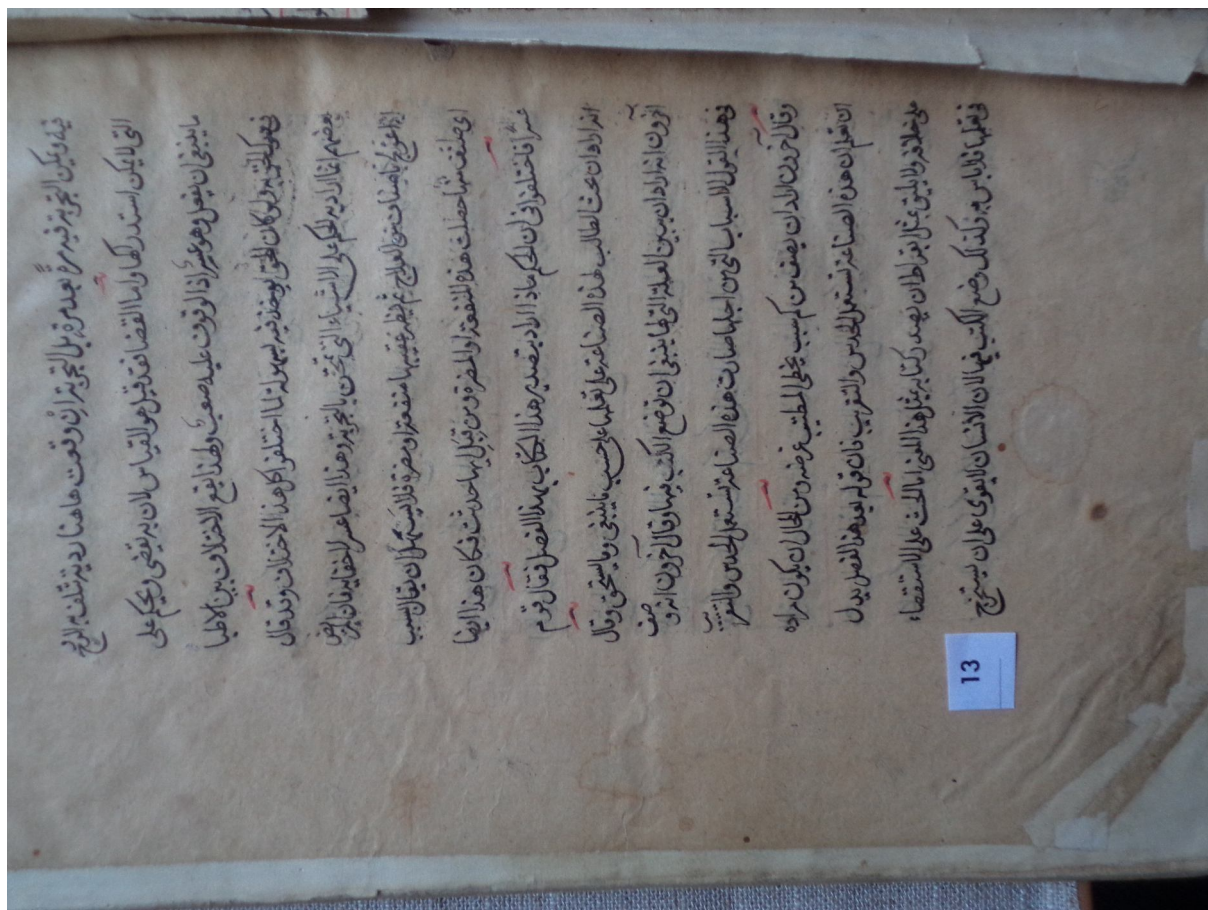 فيه ويمكن التجربة فيه مرة بعد مرة بل التجربة ان وقعت هاهنا ردية تتلف به الروح
التي لا يمكن استدراكها واما القضاء فقد قيل هو القياس لان به يقضى ويحكم على
ما ينبغي ان يفعل وهو عسر اذا الوقوف عليه صعب ولهذا يقع الاختلاف بين الاطبا
فيه كالحق ولو كان الحق يوجد فيه بسهولة لما اختلفوا كل هذا الاختلاف وقد قال
بعضهم انما اراد به الحكم على الاشياء التي تمتحن بالتجربة وهذا ايضا عسر الحقايق فان المريض
اذا عولج باصناف من العلاج ثم ظهر عقيبها منفعة او مضرة فلا يسهل ان يقال بسبب
اى صنف منها حصلت هذه المنفعة او المضرة ومن قبل ايها حدثت فكان هذا ايضا
عسرا فاختلفوا في ان الحكم ماذا اراد بتصدير هذا الكتاب بهذا الفصل فقال قوم
انه اراد ان يحث الطالب هذه الصناعة على تعلمها على حسب ما ينبغي وما يستحق وقال
اخرون انه اراد ان يبين العلة التي لها ينبغي ان توضع الكتب فيها وقال آخرون انه وصف
في هذا القول الاسباب التي من اجلها صارت هذه الصناعة تستعمل الحدس والتقريب
وقال آخرون اراد ان يصف من كم سبب يخطئ المطبب غرضه ومن المحال ان يكون مراده
ان تعلم ان هذه الصناعة تستعمل الحدس والتقريب فان قوله بعد هذا الفصل يدل
على خلافه ولا يليق بمثل بقراط ان يصدر كتابه بمثل هذا المعنى اما الحث على الاستقصاء
في تعلمها فلا باس به وكذلك وضع الكتب فيها لان الانسان لا يقوى على ان يستخرج
13